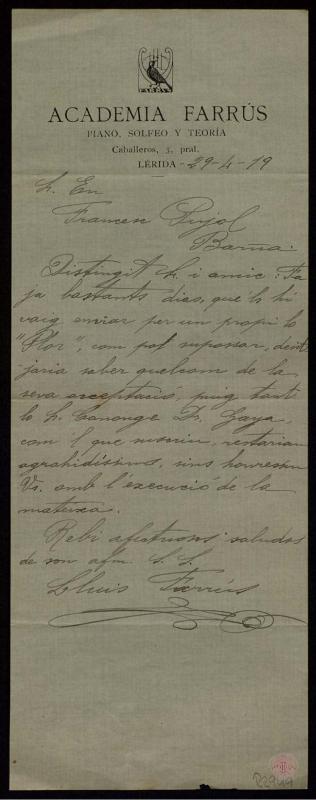 FARRÚS
ACADEMIA FARRÚS
PIANO, SOLFEO Y TEORÍA
Caballeros, 5, pral.
LÉRIDA - 29-4-19
Sr. En
Francesc Pujol
Barna.
Distingit Sr. i amic: Fa
ja bastants dias, que'ls hi
vaig enviar per un propi lo
"Flor", com pot supossar, desit-
jaria saber quelcom de la
seva acceptació, puig tant
lo Sr. Canonge Dr. Gaya,
com l que suscriu, restarian
agrahidíssims, sins honressin
Vs. amb l'execució de la
mateixa.
Rebi afectuosos saludos
de son afm. S. S.
Lluis Farrús